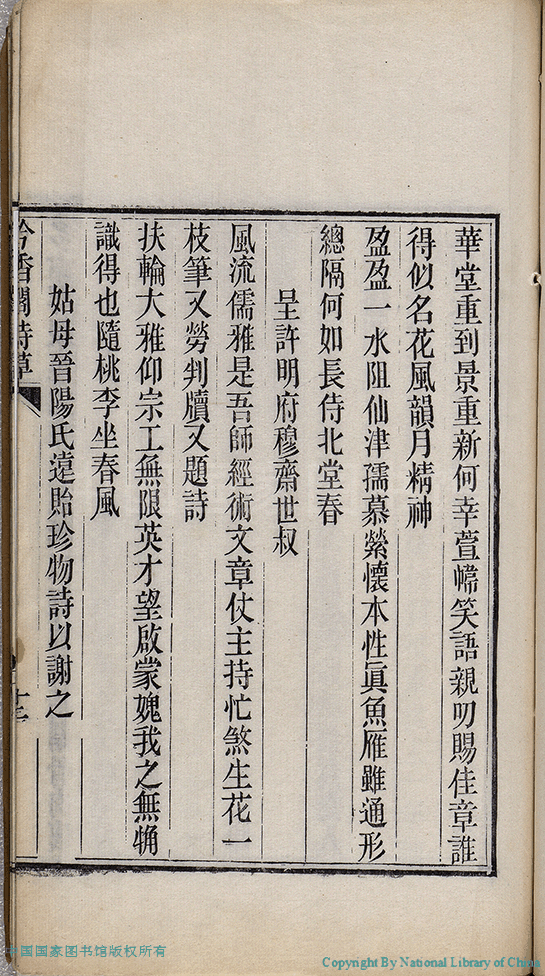 華堂重到景重新何幸萱幃笑語親叨賜佳章誰
得似名花風韻月精神
盈盈一水阻仙津孺慕縈懷本性眞魚雁雖通形
總隔何如長侍北堂春
呈許明府穆齋世叔
風流儒雅是吾師經術文章仗主持忙煞生花一
枝筆又勞判牘又題詩
扶輪大雅仰宗工無限英才望啟蒙媿我之無觕
識得也隨桃李坐春風
姑母晉陽氏遠貽珍物詩以謝之
吟香閣詩草
中国国家图书馆版权所有
Copyright By National Library of China